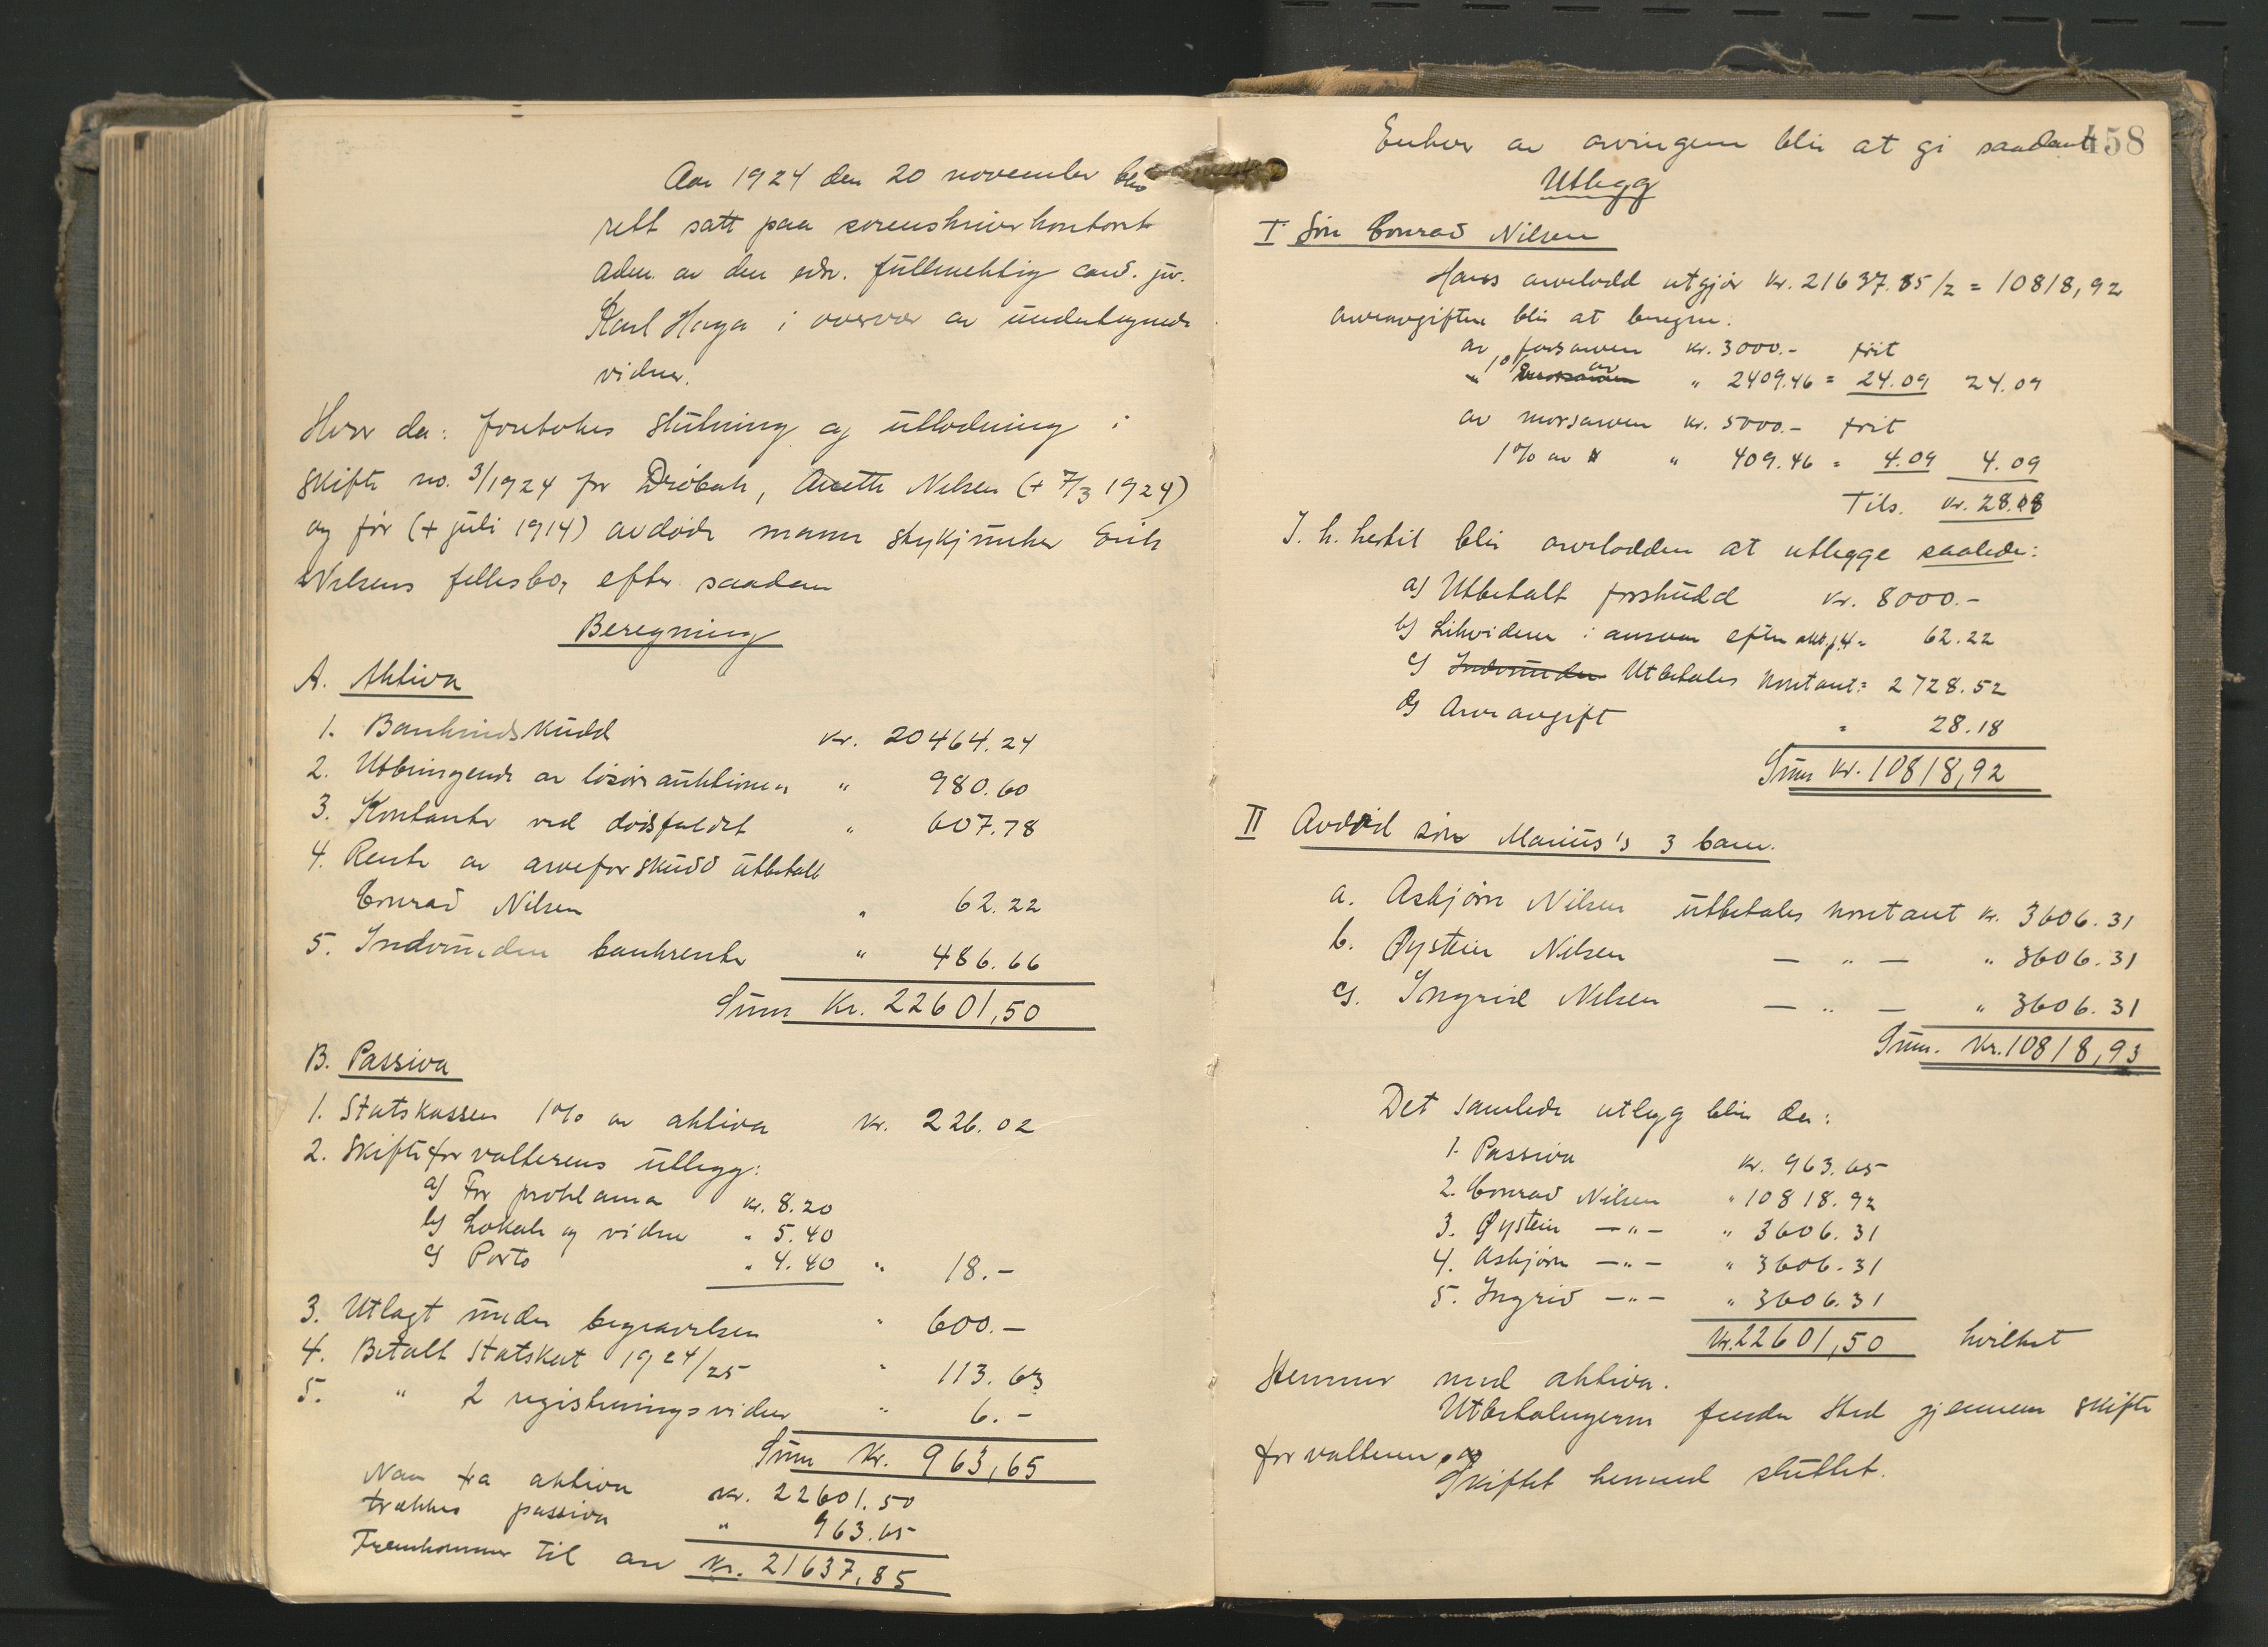 Aar 1924 den 20 november blev
rett satt paa sorenskriverkontoret
adm. av den edsv. fullmektig cand. jur.
Karl Haga i overvær av undertegnede
vidner.
Hvor da: foretokes slutning og utlodning i
skifte no. 3/1924 for Drøbak, Anette Nilsen (+ 7/3 1924)
og før (+ juli 1914) avdøde mann Erik
Nilsens fellesbo, efter saadan
Beregning
A. Aktiva
1. Bankindskudd kr. 20464.24
2. Utbringende av løsøreauktionen " 980.60
3. Kontanter ved dødsfaldet " 607.78
4. Rente av arveforskudd utbetalt
Conrad Nilsen " 62.22
5. Indvunden bankrente " 486.66
Sum Kr. 22601,50
B. Passiva
1. Statskassen 1% av aktiva kr. 226.02
2. Skifteforvalterens utlegg:
a) For proklama kr. 8.20
b) Lokale og vidner " 5.40
c) Porto " 4.40 " 18.-
3. Utlagt under begravelsen " 600.-
4. Betalt Statskat 1924/25 " 113.63
5. " 2 registreringsvidner " 6.-
Sum Kr. 963,65
Naar fra aktiva kr. 22601.50
trækkes passiva " 963.65
Fremkommer til arv kr. 21637,85
458
Enhver av arvingene blir at gi saadant
Utlegg
I Søn Conrad Nilsen
Hans arvelodd utgjør kr. 21637.85/2 = 10818,92
Arveavgiften blir at beregne:
av farsarven kr. 3000.- frit
" 1% av " 2409.46 = 24.09 24.09
av morsarven kr. 5000.- frit
1% av " 409.46 = 4.09 4.09
Tils. kr. 28.18
I. h. hertil blir arvelodden at utlegge saalede:
a) Utbetalt forskudd kr. 8000.-
b) Likvideres i ansvar efter akt. p. 4 = 62.22
c) Indvunden Utbetales kontant = 2728.52
d) Arveavgift = 28.18
Sum kr. 10818,92
II Avdød søn Marius's 3 barn.
a. Asbjørn Nilsen utbetales kontant kr. 3606.31
b. Øystein Nilsen — " — " 3606.31
c). Ingrid Nilsen — " — " 3606.31
Sum. Kr. 10818,93
Det samlede utlegg blir da:
1. Passiva kr. 963.65
2. Conrad Nilsen " 10818.92
3. Øystein —"— " 3606.31
4. Asbjørn —"— " 3606.31
5. Ingrid —"— " 3606.31
Kr. 22601,50 hvilket
stemmer med aktiva.
Utbetalingerne finder sted gjennem skifte
forvalteren.
Skiftet hermed sluttet.